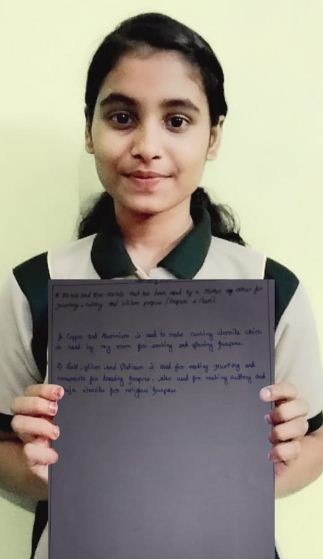 Metals and Non-Metals that has been used by a Mother my Mother for
jewellery, cutlery and utilism purpose (Prepare a chart)
1) Copper and Aluminium is used to make cooking utensils which
is used by my mom for cooking and purpose.
2) Gold, silver and Platinum is used for making jewellery and
ornaments for purpose. also used for making cutlery and
utensils for religious purpose.